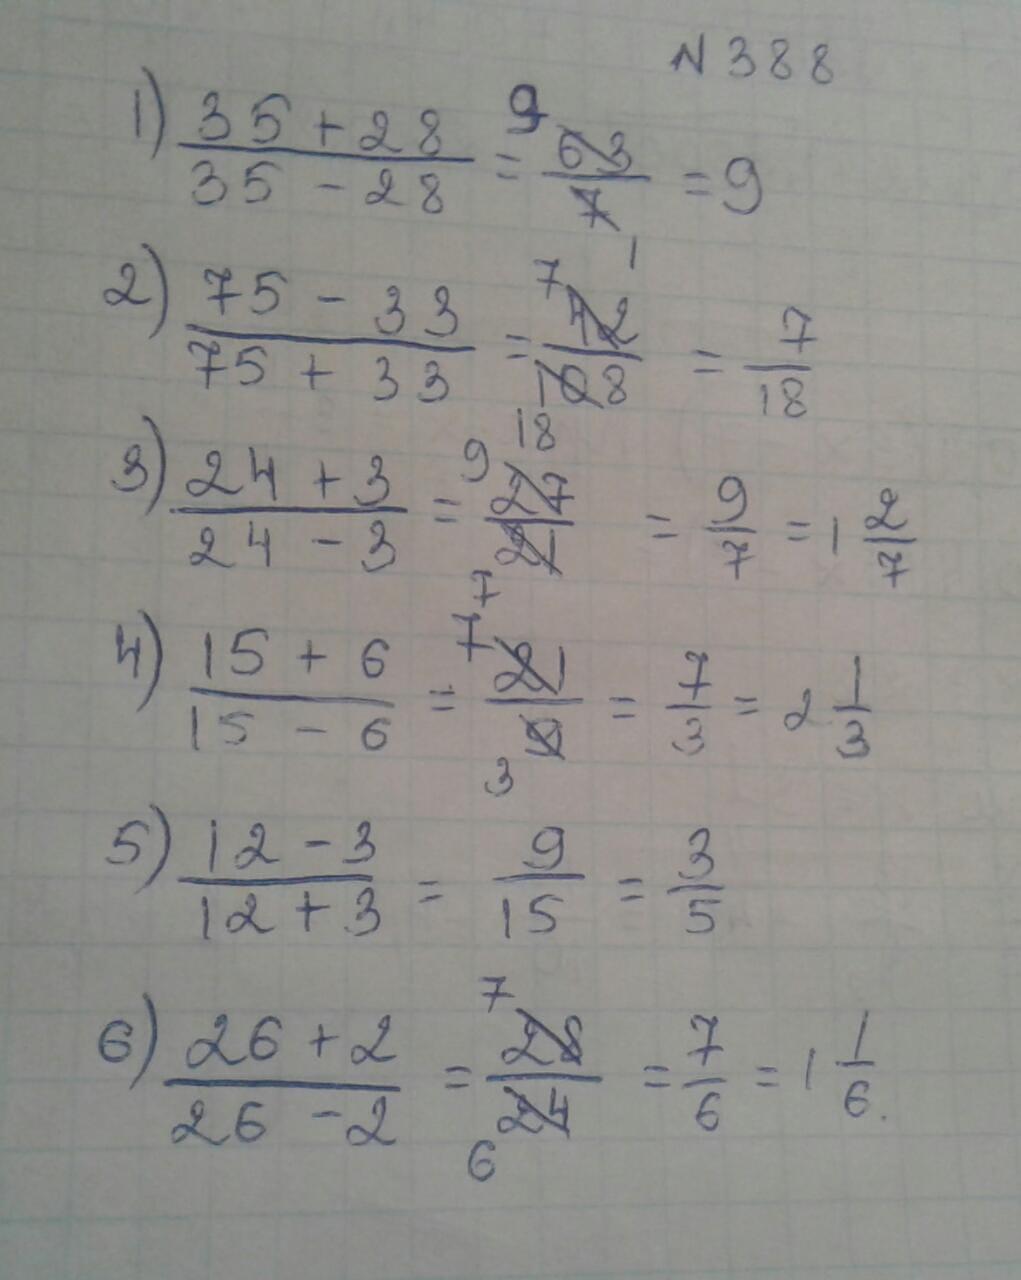 N 388
1) (35 + 28)/(35 - 28) = 63/7 = 9
9 1
2) (75 - 33)/(75 + 33) = 42/108 = 7/18
7 18
3) (24 + 3)/(24 - 3) = 27/21 = 9/7 = 1 2/7
9 7
4) (15 + 6)/(15 - 6) = 21/9 = 7/3 = 2 1/3
7 3
5) (12 - 3)/(12 + 3) = 9/15 = 3/5
6) (26 + 2)/(26 - 2) = 28/24 = 7/6 = 1 1/6.
7 6